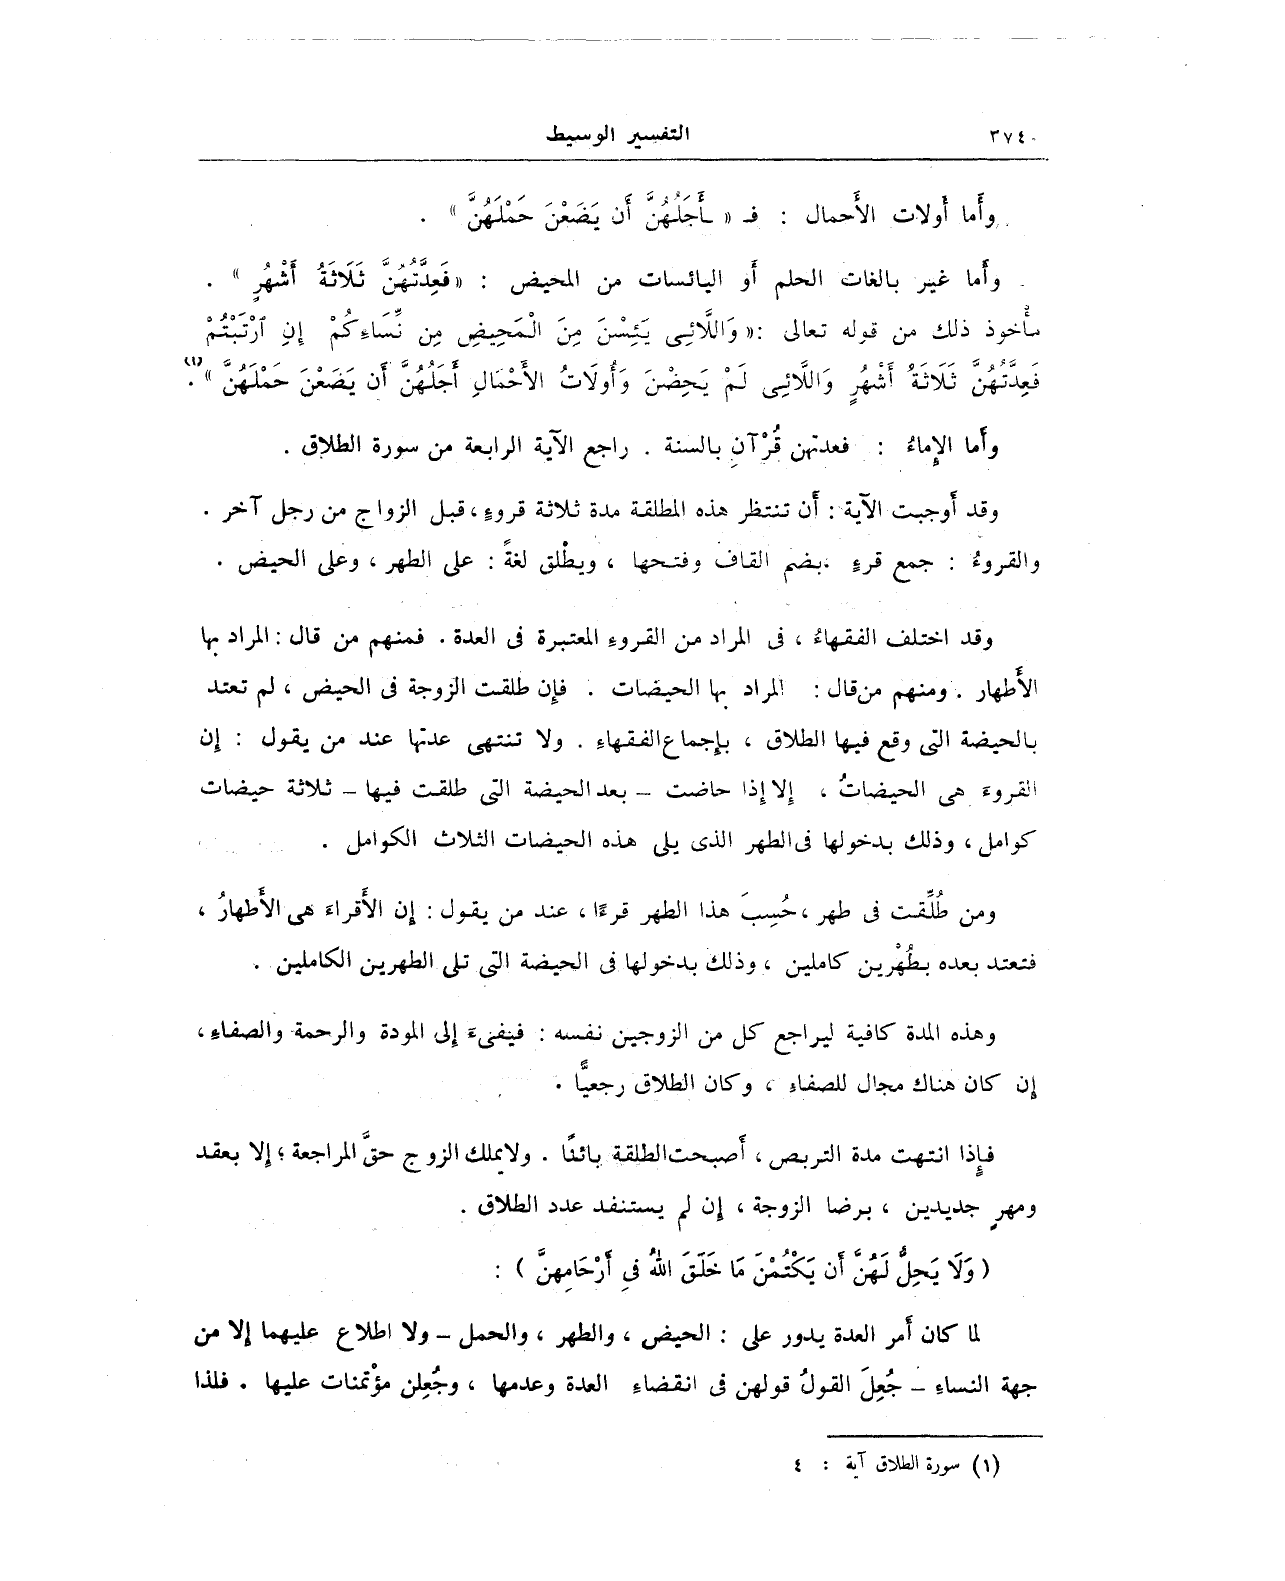 ٣٧٤٠ التفسير الوسيط
وأَما أُولات الأَحمال : فـ « ـأَجَلُهُنَّ أَن يَضَعْنَ حَمْلَهُنَّ » .
وأَما غير بالغات الحلم أَو اليائسات من المحيض : « فَعِدَّتُهُنَّ ثَلَاثَةُ أَشْهُرٍ » .
مأْخوذ ذلك من قوله تعالى :« وَاللَّائِى يَئِسْنَ مِنَ الْمَحِيضِ مِن نِّسَاءِكُمْ إِنِ ارْتَبْتُمْ
فَعِدَّتُهُنَّ ثَلَاثَةُ أَشْهُرٍ وَاللَّائِى لَمْ يَحِضْنَ وَأُولَاتُ الأَحْمَالِ أَجَلُهُنَّ أَن يَضَعْنَ حَمْلَهُنَّ »(١).
وأَما الإِماءُ : فعدتهن قُرْآنِ بالسنة . راجع الآية الرابعة من سورة الطلاق .
وقد أَوجبت الآية : أَن تنتظر هذه المطلقة مدة ثلاثة قروءٍ ، قبل الزواج من رجل آخر .
والقروءُ : جمع قرءٍ .بضم القاف وفتحها ، ويطْلق لغةً : على الطهر ، وعلى الحيض .
وقد اختلف الفقهاءُ ، فى المراد من القروءِ المعتبرة فى العدة . فمنهم من قال : المراد بها
الأَطهار . ومنهم من قال : المراد بها الحيضات . فإِن طلقت الزوجة فى الحيض ، لم تعتد
بالحيضة التى وقع فيها الطلاق ، بإِجماع الفقهاءِ . ولا تنتهى عدتها عند من يقول : إِن
القروءَ هى الحيضاتُ ، إِلا إِذا حاضت – بعد الحيضة التى طلقت فيها – ثلاثة حيضات
كوامل ، وذلك بدخولها فى الطهر الذى يلى هذه الحيضات الثلاث الكوامل .
ومن طُلِّقت فى طهر ، حُسِبَ هذا الطهر قرءًا ، عند من يقول : إِن الأَقراءَ هى الأَطهارُ ،
فتعتد بعده بطُهْرين كاملين ، وذلك بدخولها فى الحيضة التى تلى الطهرين الكاملين .
وهذه المدة كافية ليراجع كل من الزوجين نفسه : فيفىءَ إِلى المودة والرحمة والصفاءِ ،
إِن كان هناك مجال للصفاءِ ، وكان الطلاق رجعيًّا .
فإِذا انتهت مدة التربص ، أَصبحت الطلقة بائنًا . ولا يملك الزوج حقَّ المراجعة ؛ إِلا بعقد
ومهرٍ جديدين ، برضا الزوجة ، إِن لم يستنفد عدد الطلاق .
( وَلَا يَحِلُّ لَهُنَّ أَن يَكْتُمْنَ مَا خَلَقَ اللهُ فِى أَرْحَامِهِنَّ ) :
لما كان أَمر العدة يدور على : الحيض ، والطهر ، والحمل – ولا اطلاع عليهما إِلا من
جهة النساءِ – جُعِلَ القولُ قولهن فى انقضاءِ العدة وعدمها ، وجُعِلن مؤْتمنات عليها . فلذا
(١) سورة الطلاق آية : ٤